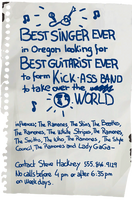 BEST SINGER EVER
in Oregon looking for
BEST GUITARIST EVER
to form KICK-ASS BAND
to take over the
WORLD
Influences: The Ramones, The Stains, The Beatles,
The Ramones, The White Stripes, The Ramones,
The Smiths, The Who, The Ramones, The Style
Council, The Ramones and Lady GaGa-
Contact Steve Hackney 555.146.9129
No calls before 4 pm or after 6:35 pm
on Weekdays.